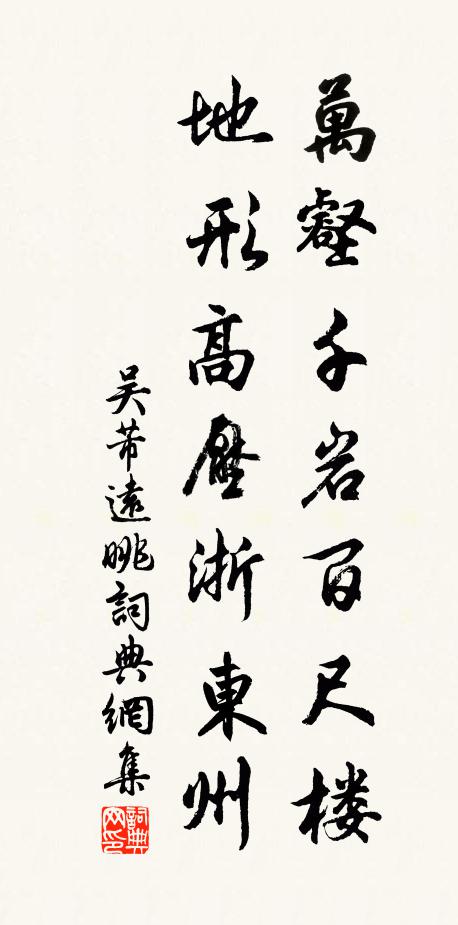 萬壑千岩百尺楼
地形高壓浙東州
吴芾遠眺詞典網集
詞典网印